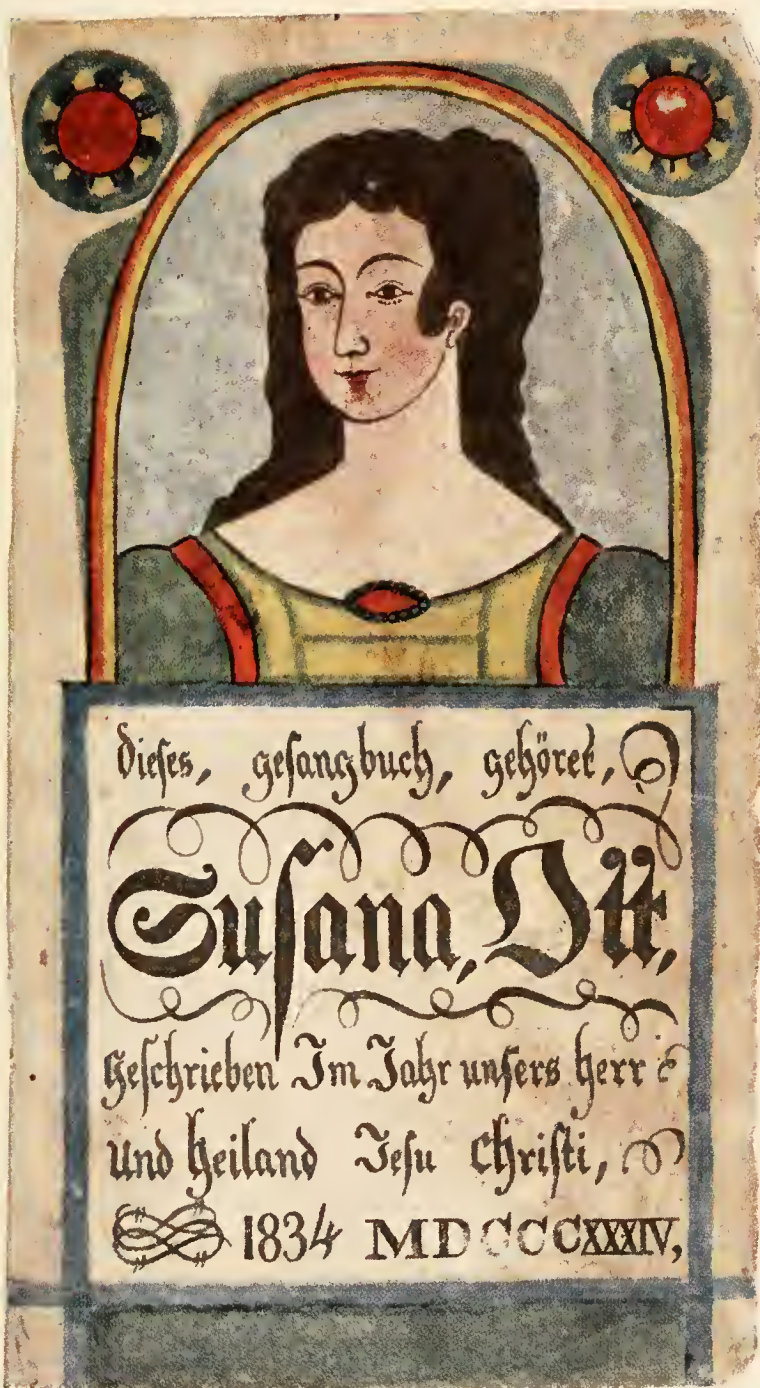 dieses, gesangbuch, gehöret,
Susana, Ott,
geschrieben Im Jahr unsers herr
und heiland Jesu Christi,
1834 MDCCCXXXIV,